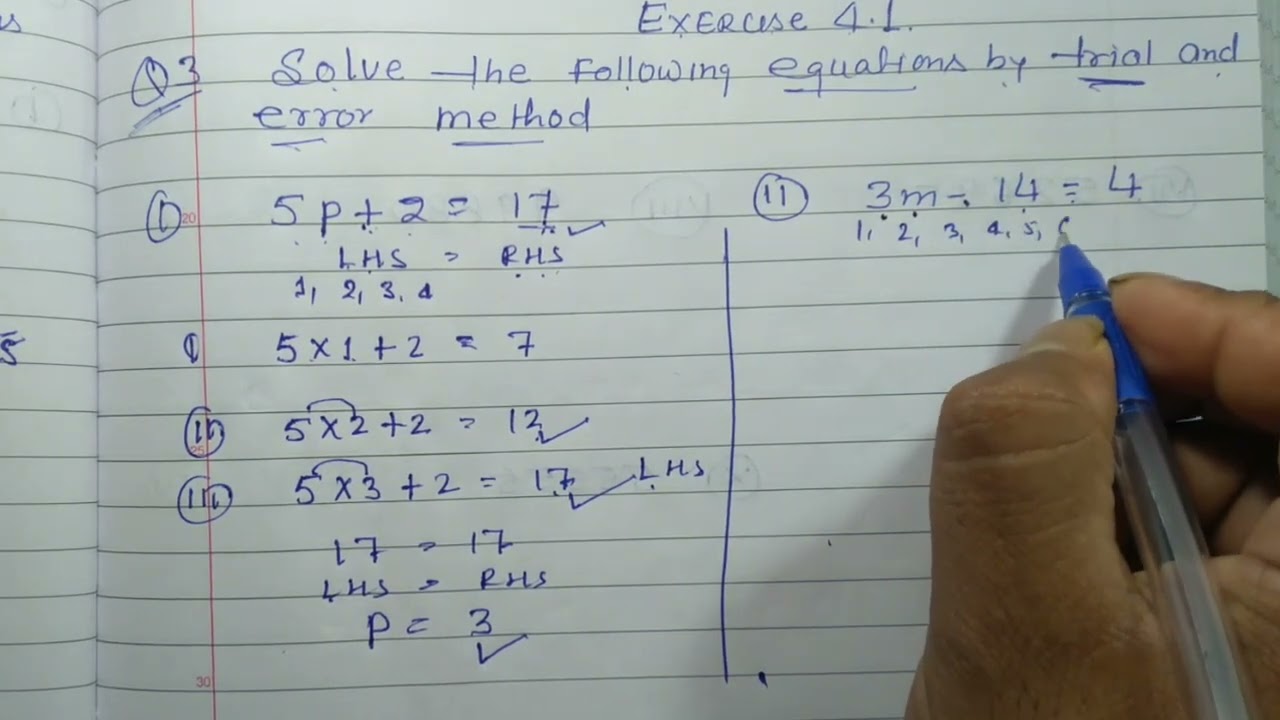 Exercise 4.1.
Q3 Solve the following equations by trial and
error method
(i) 5p + 2 = 17
LHS = RHS
1, 2, 3, 4
(i) 5 × 1 + 2 = 7
(ii) 5 × 2 + 2 = 12
(iii) 5 × 3 + 2 = 17 LHS
17 = 17
LHS = RHS
p = 3
(ii) 3m - 14 = 4
1, 2, 3, 4, 5,
20
25
30
5